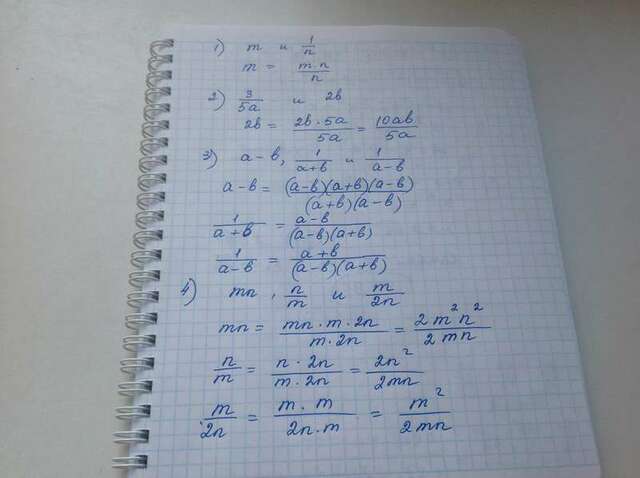 1) m и 1/n
m = m·n/n
2) 3/5a и 2b
2b = 2b·5a/5a = 10ab/5a
3) a-b, 1/a+b и 1/a-b
a-b = (a-b)(a+b)(a-b)/(a+b)(a-b)
1/a+b = a-b/(a-b)(a+b)
1/a-b = a+b/(a-b)(a+b)
4) mn, n/m и m/2n
mn = mn·m·2n/m·2n = 2m²n²/2mn
n/m = n·2n/m·2n = 2n²/2mn
m/2n = m·m/2n·m = m²/2mn